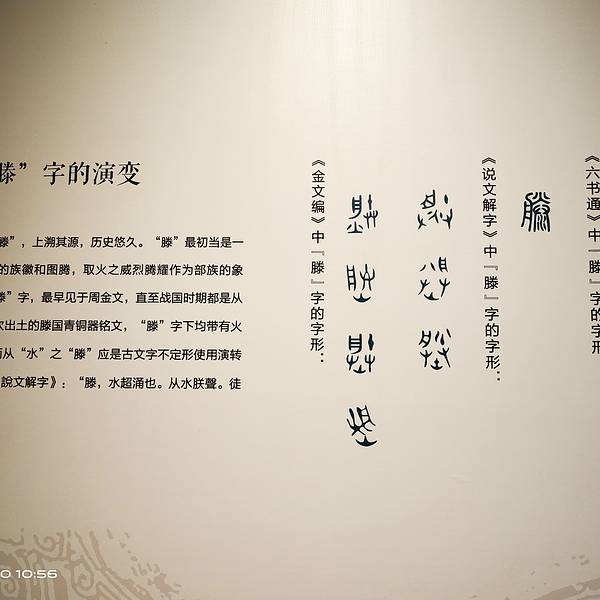 滕”字的演变
滕”，上溯其源，历史悠久。“滕”最初当是一
的族徽和图腾，取火之威烈腾耀作为部族的象
滕”字，最早见于周金文，直至战国时期都是从
次出土的滕国青铜器铭文，“滕”字下均带有火
而从“水”之“滕”应是古文字不定形使用演转
說文解字》：“滕，水超涌也。从水朕聲。徒
《金文编》中『滕』字的字形：
《说文解字》中『滕』字的字形：
《六书通》中『滕』字的字形
0 10:56